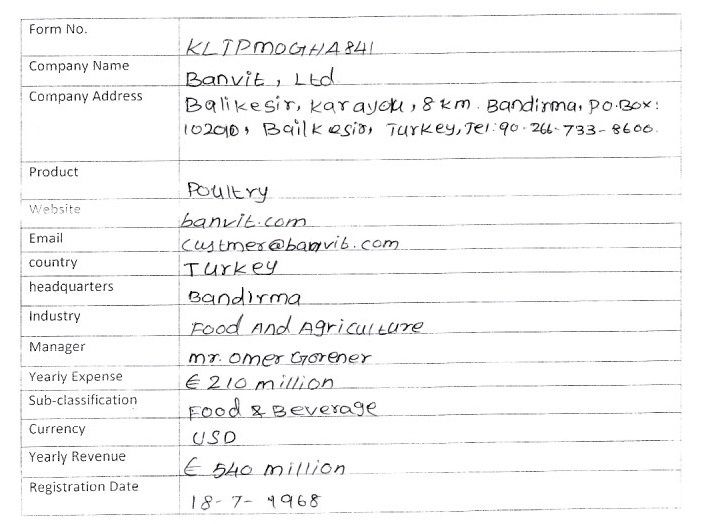 Form No. KLTPMOGHA841
Company Name Banvit, Ltd.
Company Address Balikesir, Karayolu, 8 km. Bandirma, PO.Box:
102010, Bailkesir, Turkey, Tel: 90-266-733-8600.
Product Poultry
Website banvit.com
Email custmer@banvit.com
country Turkey
headquarters Bandirma
Industry Food And Agriculture
Manager mr. omer Gorener
Yearly Expense € 210 million
Sub-classification Food & Beverage
Currency USD
Yearly Revenue € 540 million
Registration Date 18-7-1968